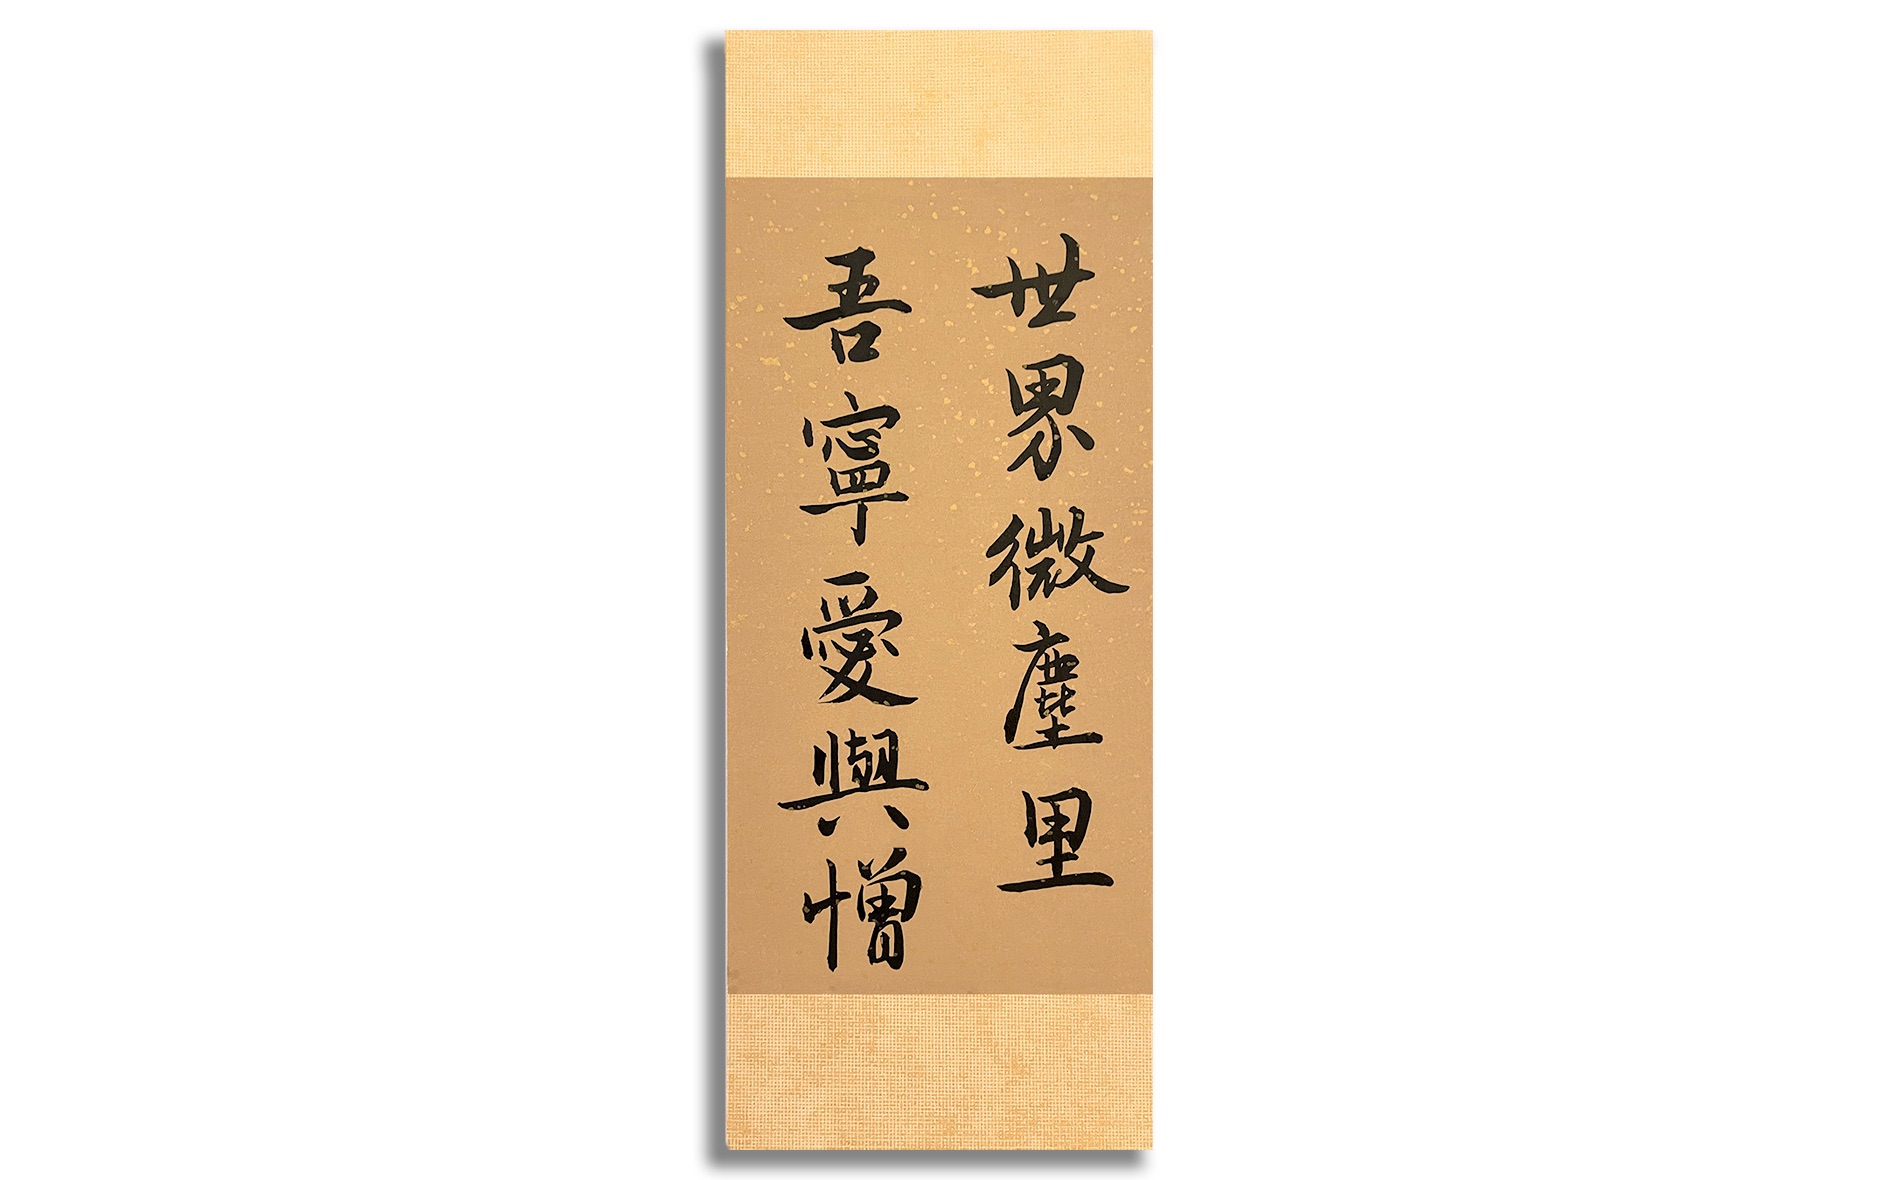 世界微塵里
吾寧愛與憎